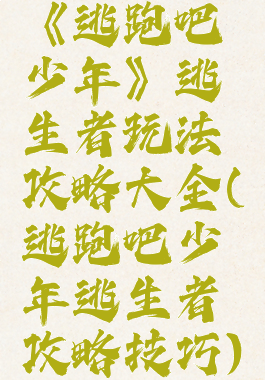 《逃跑吧
少年》逃
生者玩法
攻略大全(
逃跑吧少
年逃生者
攻略技巧)